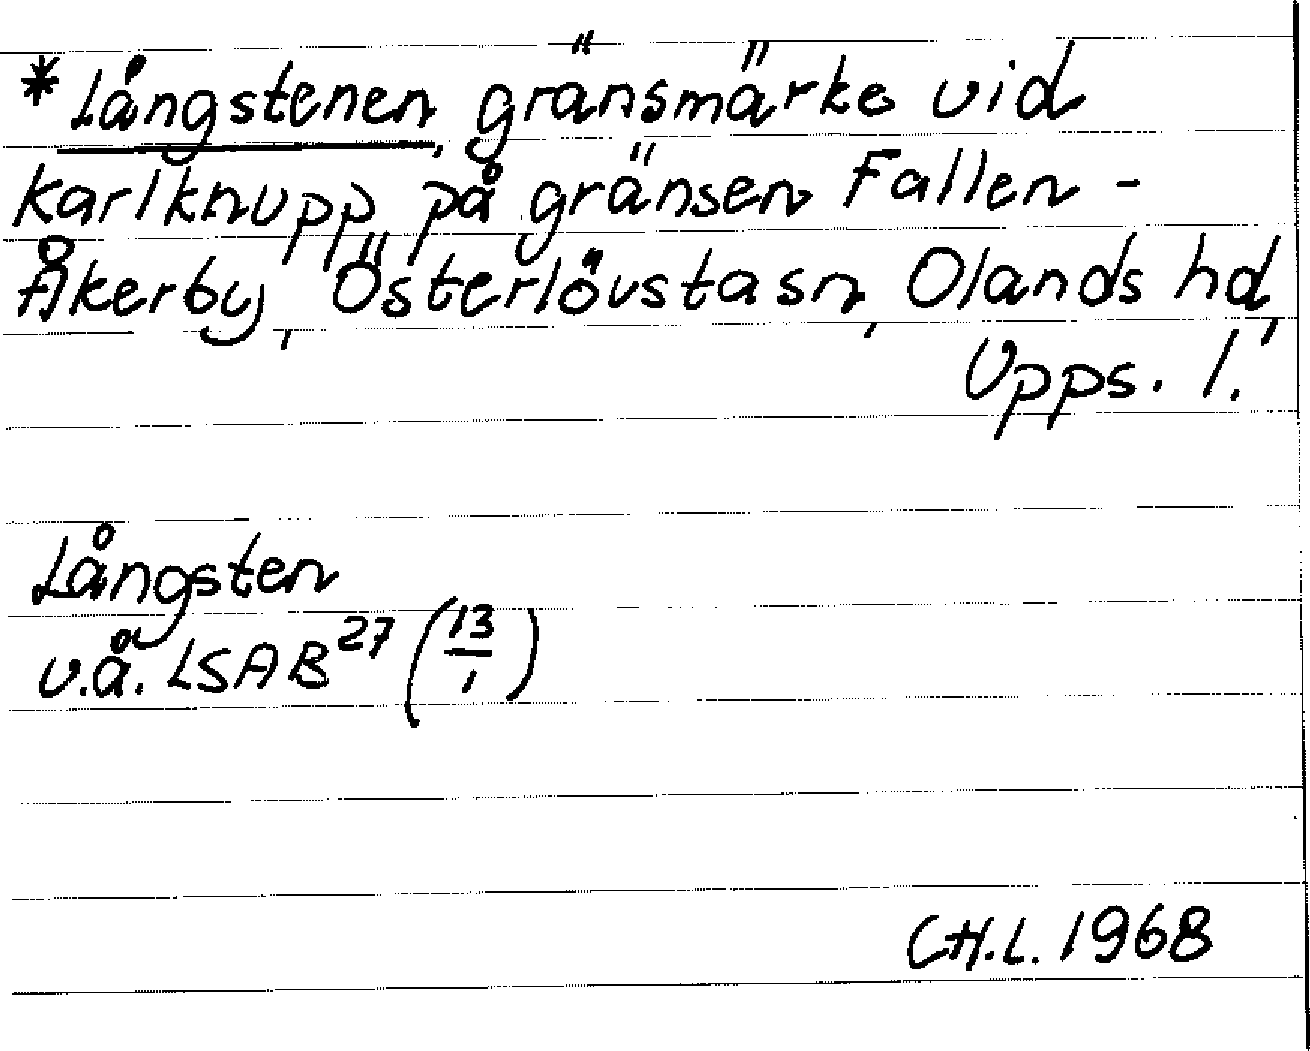 * Långstenen, gränsmärke vid
Karlknupp på gränsen Fallen -
Åkerby, Österlövsta sn, Olands hd,
Upps. l.
Långsten
v.å. LSA B27 (13/1)
CH.L. 1968